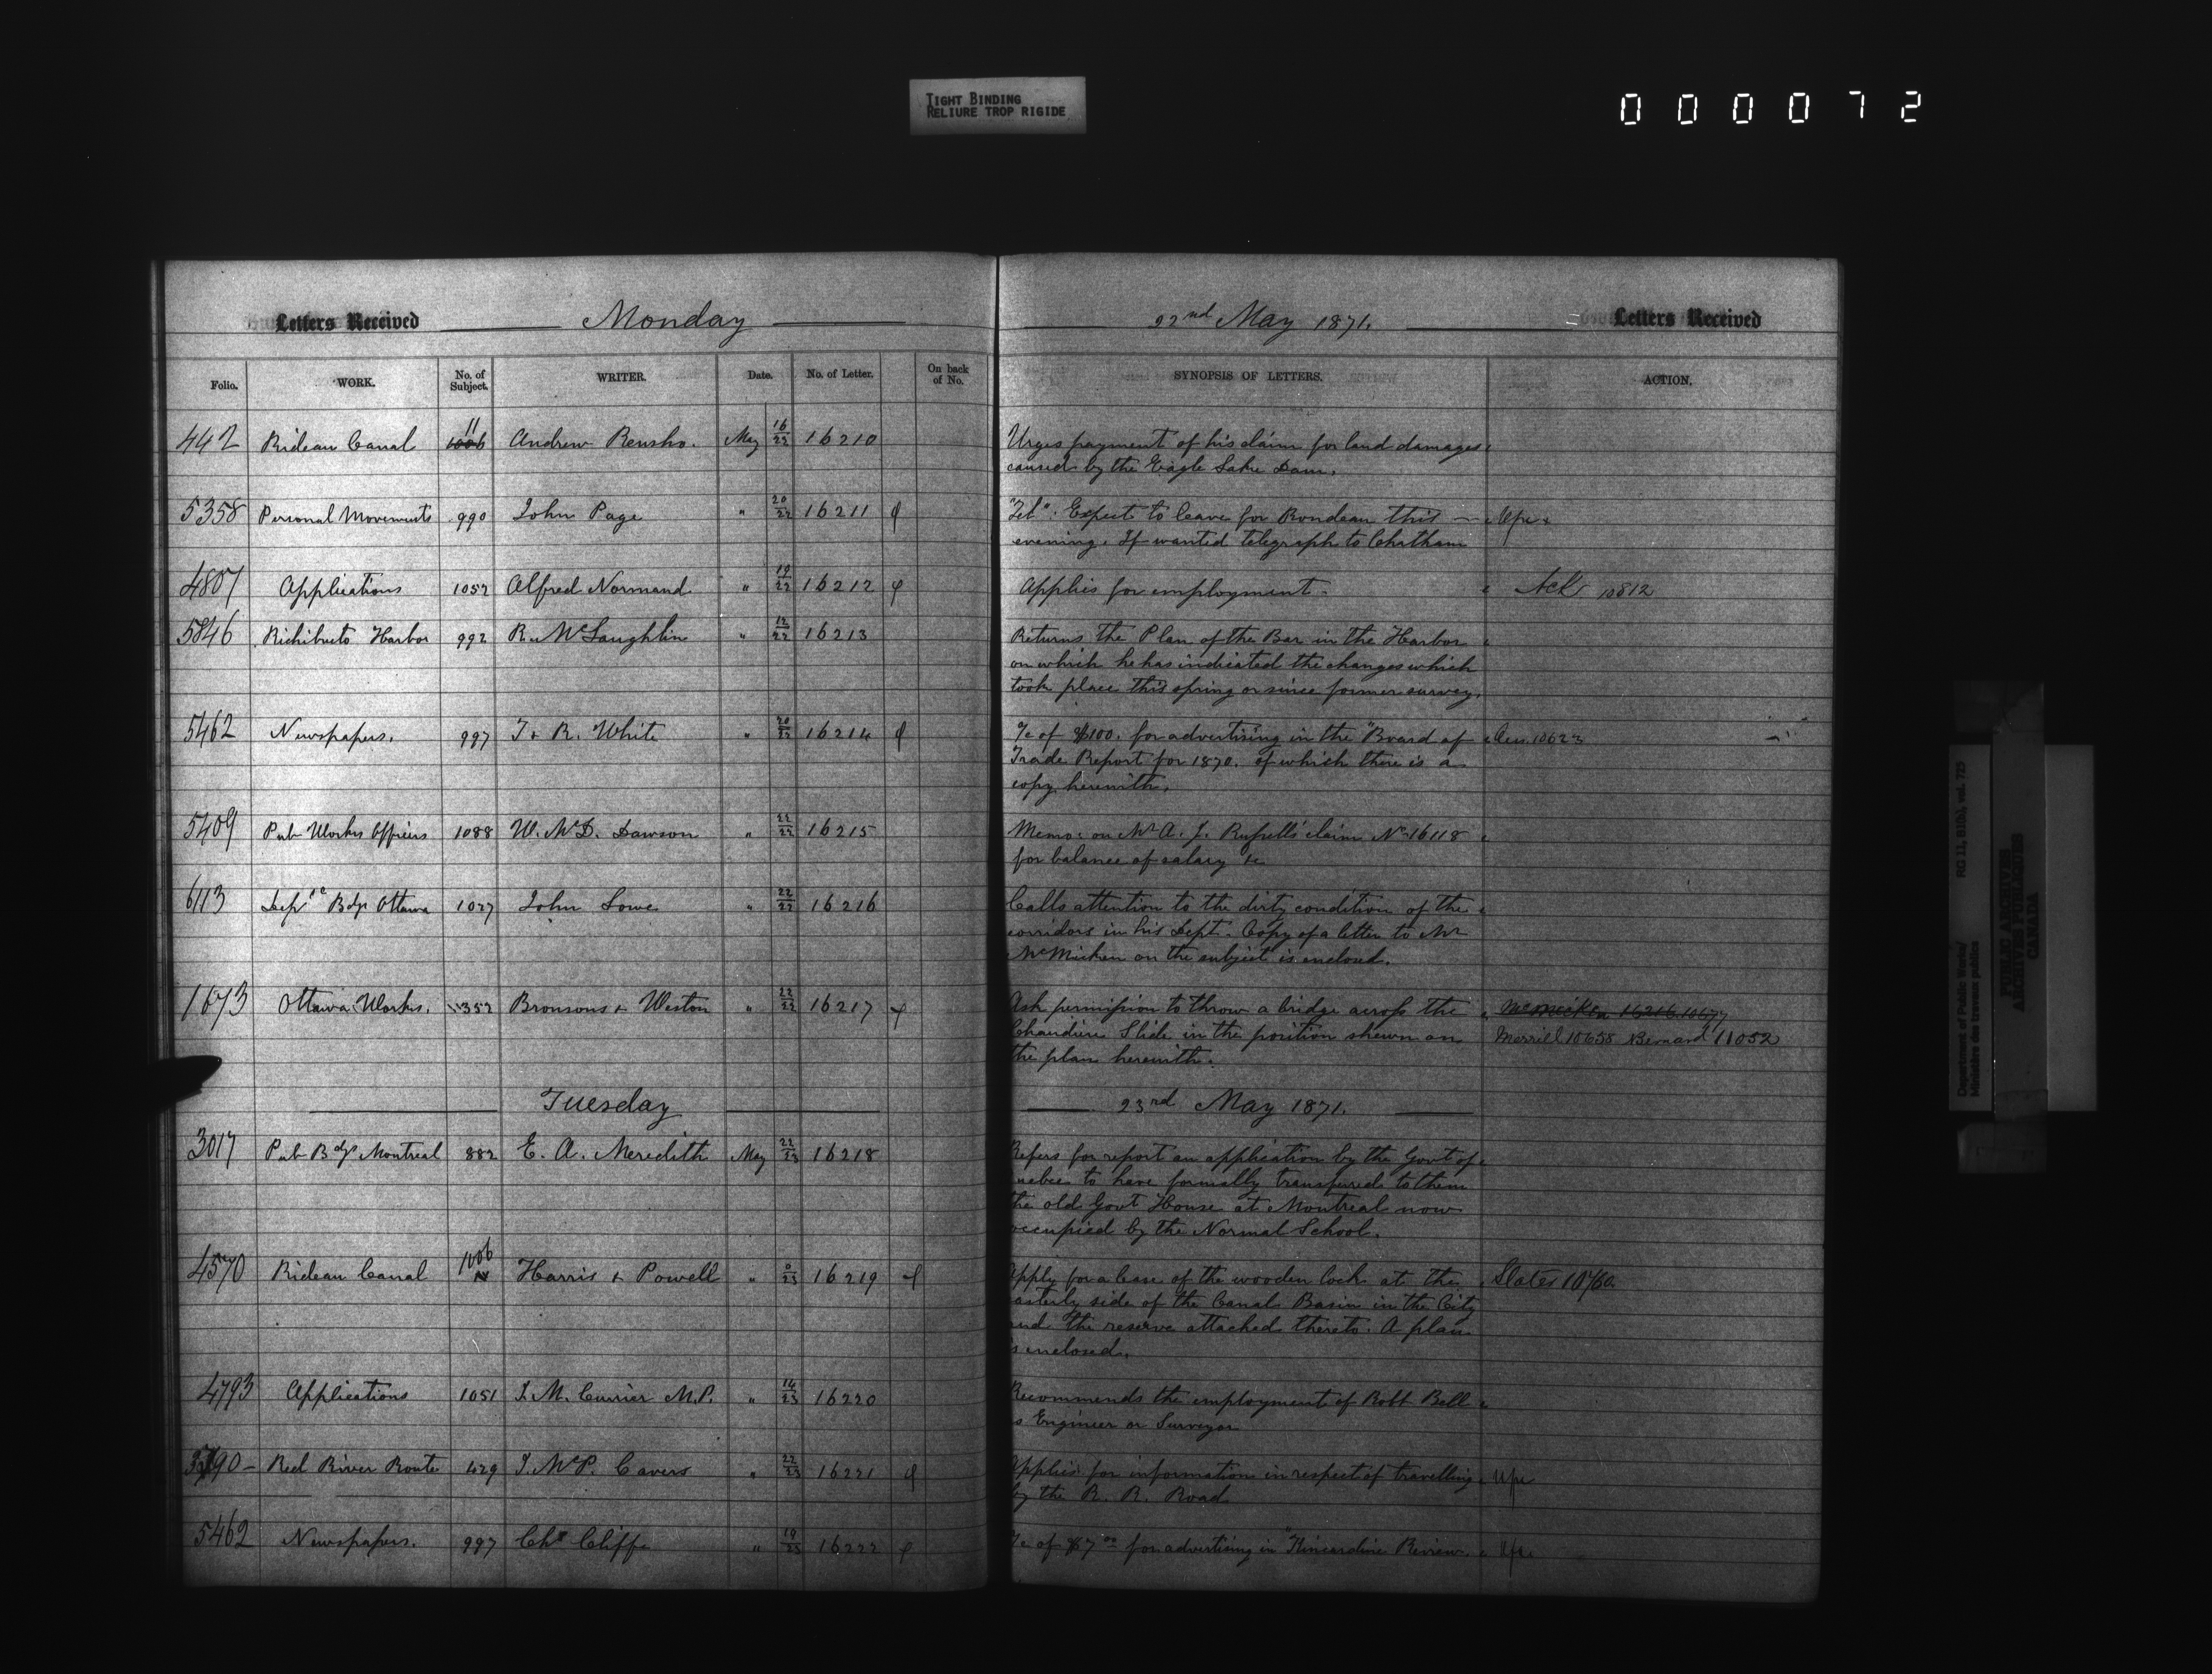 TIGHT BINDING
RELIURE TROP RIGIDE
000072
Letters Received Monday 22nd May 1871. Letters Received
Folio. WORK. No. of Subject. WRITER. Date. No. of Letter. On back of No. SYNOPSIS OF LETTERS. ACTION.
442 Rideau Canal 1006 11 Andrew May 16/22 16210 Urges payment of his claim for land damages
caused by the Eagle Lake Dam.
5358 Personal Movements 990 John Page " 20/22 16211 "Tel". Expect to leave for Rondeau this
evening. If wanted telegraph to Chatham
4807 Applications 1052 Alfred Normand " 19/22 16212 Applies for employment. Ack 10812
5846 Richibucto Harbor 992 R. McLaughlin " 12/22 16213 Returns the Plan of the Bar in the Harbor
on which he has indicated the changes which
took place this spring or since former survey.
5462 Newspapers. 997 T & R. White " 20/22 16214 a/c of $100. for advertising in the "Board of 10623
Trade Report for 1870. of which there is a
copy herewith.
5409 Pub Works Officers 1088 W. McD. Dawson " 22/22 16215 Memo: on Mr A. J. Russell's claim No 16118
for balance of salary &c
6113 Depl Bdgs Ottawa 1027 John Lowe " 22/22 16216 Calls attention to the dirty condition of the
corridors in his Dept. Copy of a letter to Mr
McMicken on the subject is enclosed.
1673 Ottawa Works. 352 Bronsons & Weston " 22/22 16217 Ask permission to throw a bridge across the McMicken 16216.10677
Chaudière Slide in the position shewn on Merrill 10658 Bernard 11052
the plan herewith.
Tuesday 23rd May 1871.
3017 Pub Bdgs Montreal 882 E. A. Meredith May 22/23 16218 Refers for report an application by the Govt of
uebec to have formally transferred to them
the old Govt House at Montreal now
occupied by the Normal School.
4570 Rideau Canal 1006 Harris & Powell " 0/23 16219 Apply for a lease of the wooden lock at the Slater 10760
asterly side of the Canal Basin in the City
and the reserve attached thereto. A plan
is enclosed.
4793 Applications 1051 J. M. Currier M.P. " 14/23 16220 Recommends the employment of Robt Bell
as Engineer or Surveyor
90 Red River Route 429 J. McP. Cavers " 22/23 16221 Applies for information in respect of travelling
by the R. R. Road
5462 Newspapers. 997 Chs Cliffe " 19/23 16222 a/c of $7 00 for advertising in "Kincardine Review.
Department of Public Works/
Ministère des travaux publics
RG 11, B1(b), vol. 725
PUBLIC ARCHIVES
ARCHIVES PUBLIQUES
CANADA